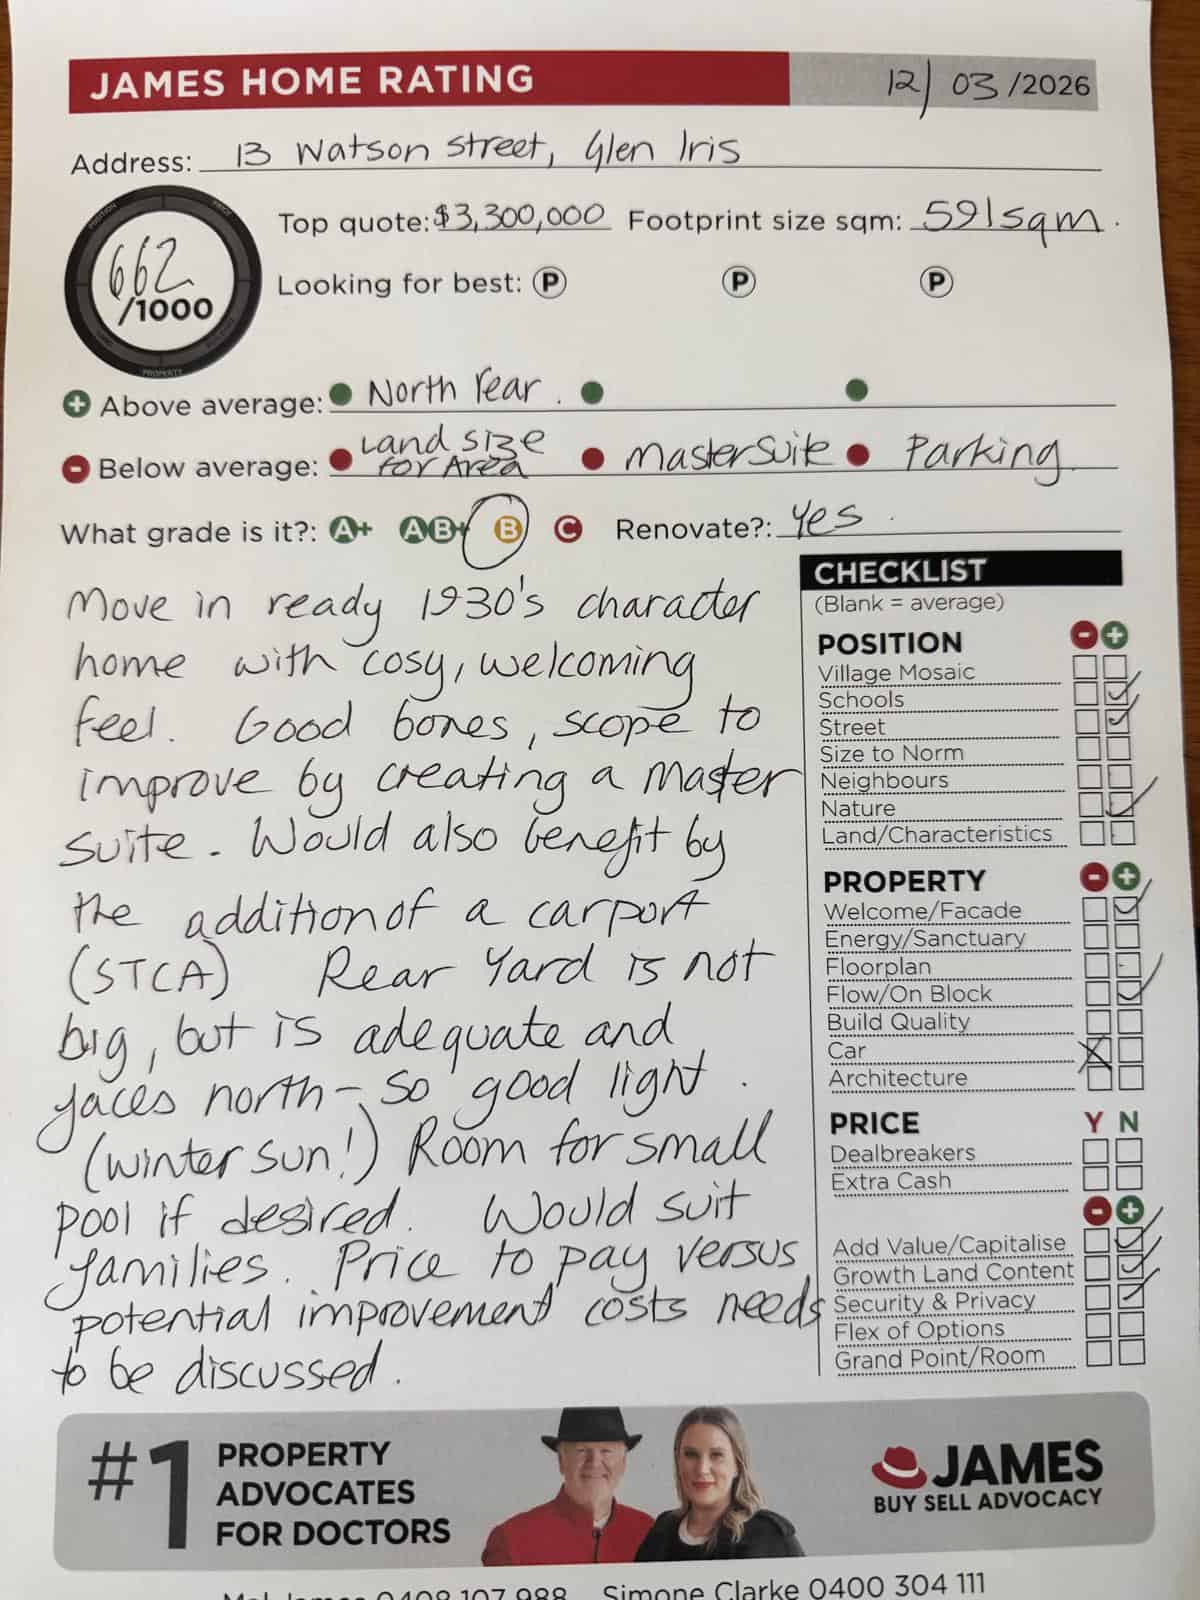 JAMES HOME RATING 12/03/2026
Address: 13 Watson Street, Glen Iris
POSITION PRICE
662
/1000
PROPERTY
Top quote: $3,300,000 Footprint size sqm: 591sqm.
Looking for best: P P P
+ Above average: North rear.
- Below average: Land size for Area Master Suite Parking
What grade is it?: A+ A B+ B C Renovate?: Yes.
Move in ready 1930's character
home with cosy, welcoming
feel. Good bones, scope to
improve by creating a master
suite. Would also benefit by
the addition of a carport
(STCA) Rear Yard is not
big, but is adequate and
faces north - so good light.
(winter sun!) Room for small
pool if desired. Would suit
families. Price to pay versus
potential improvement costs needs
to be discussed.
CHECKLIST
(Blank = average)
POSITION - +
Village Mosaic
Schools
Street
Size to Norm
Neighbours
Nature
Land/Characteristics
PROPERTY - +
Welcome/Facade
Energy/Sanctuary
Floorplan
Flow/On Block
Build Quality
Car
Architecture
PRICE Y N
Dealbreakers
Extra Cash
- +
Add Value/Capitalise
Growth Land Content
Security & Privacy
Flex of Options
Grand Point/Room
#1 PROPERTY
ADVOCATES
FOR DOCTORS
JAMES
BUY SELL ADVOCACY
Mal James 0408 107 988 Simone Clarke 0400 304 111